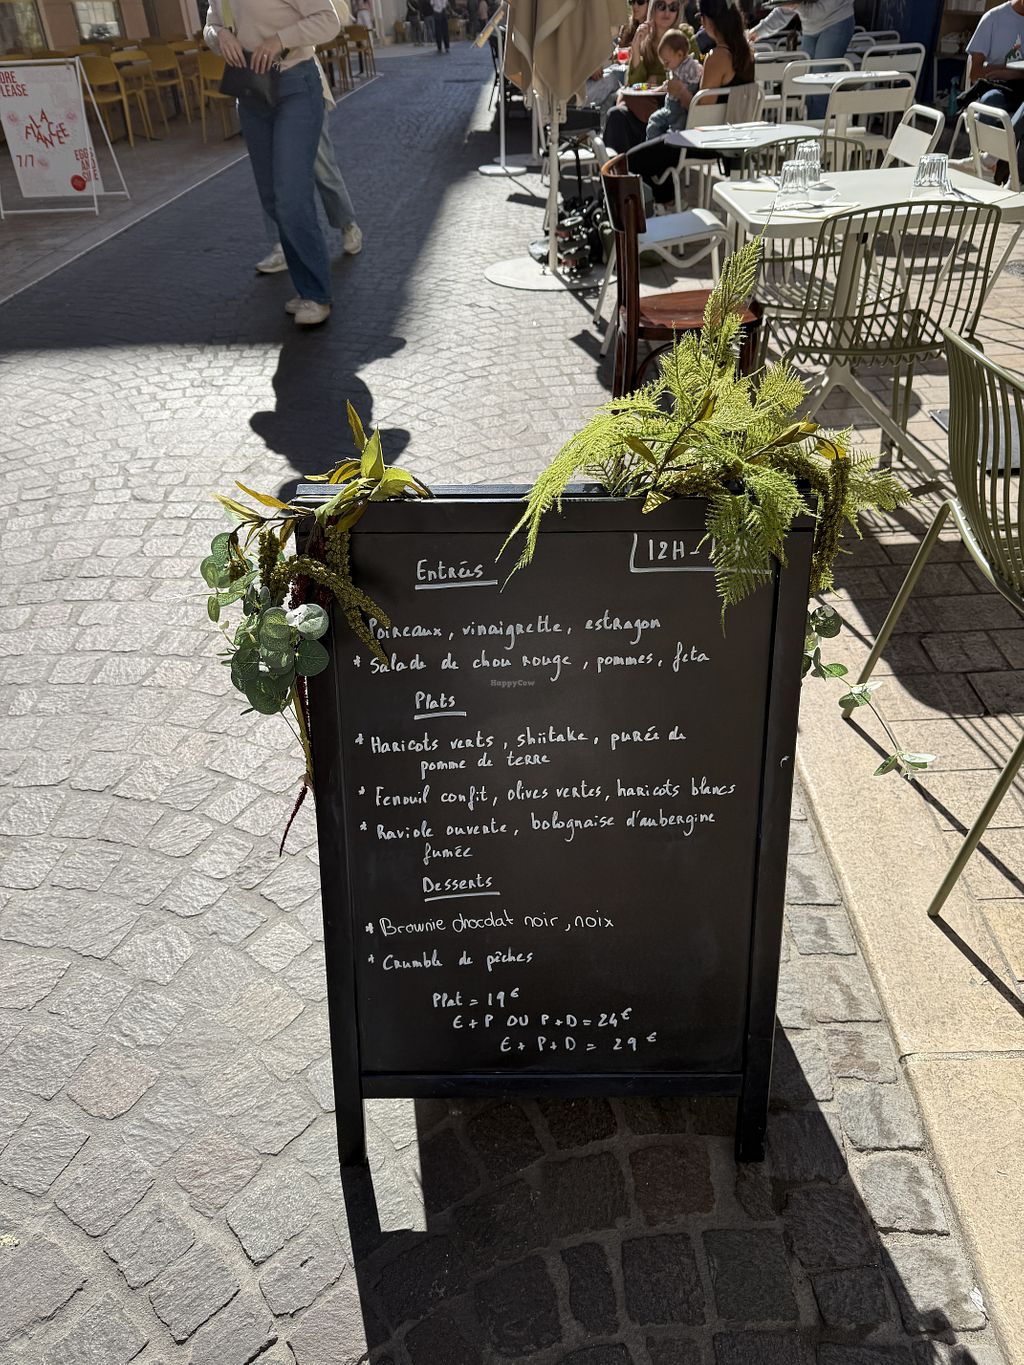 ORE
LEASE
LA
FIANCÉE
7/7
12H -
Entrées
Poireaux, vinaigrette, estragon
* Salade de chou rouge, pommes, feta
HappyCow
Plats
* Haricots verts, shiitake, purée de
pomme de terre
* Fenouil confit, olives vertes, haricots blancs
* Raviole ouverte, bolognaise d'aubergine
fumée
Desserts
* Brownie chocolat noir, noix
* Crumble de pêches
Plat = 19€
E + P OU P + D = 24€
E + P + D = 29€